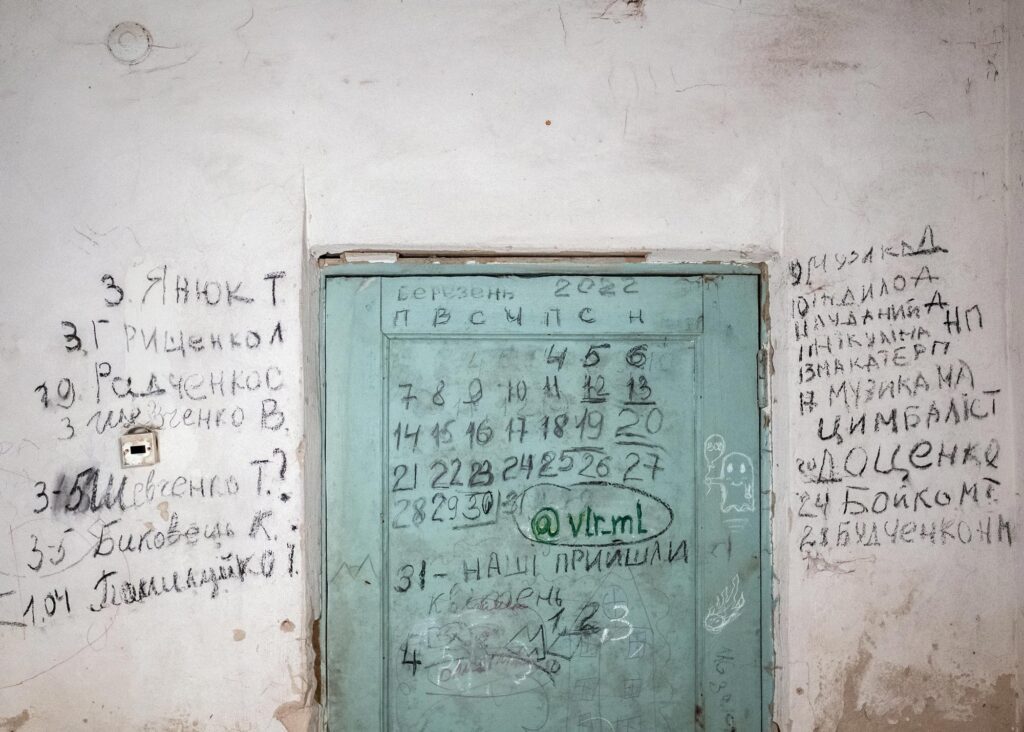 3. Янюк Т.
3. Грищенко Л
19. Радченко С
3 Шевченко В.
3-5 Шевченко Т.?
3-5 Биковець К.
1.04
Березень 2022
П В С Ч П С Н
4 5 6
7 8 9 10 11 12 13
14 15 16 17 18 19 20
21 22 23 24 25 26 27
28 29 30 31
@vlr_ml
31 - НАШІ ПРИЙШЛИ
квітень
1, 2, 3
4
9 МУЗИКА Д
НП
17 МУЗИКА МА
ЦИМБАЛІСТ
20 ДОЦЕНКО
24 БОЙКО М.Г.
28 БУДЧЕНКО